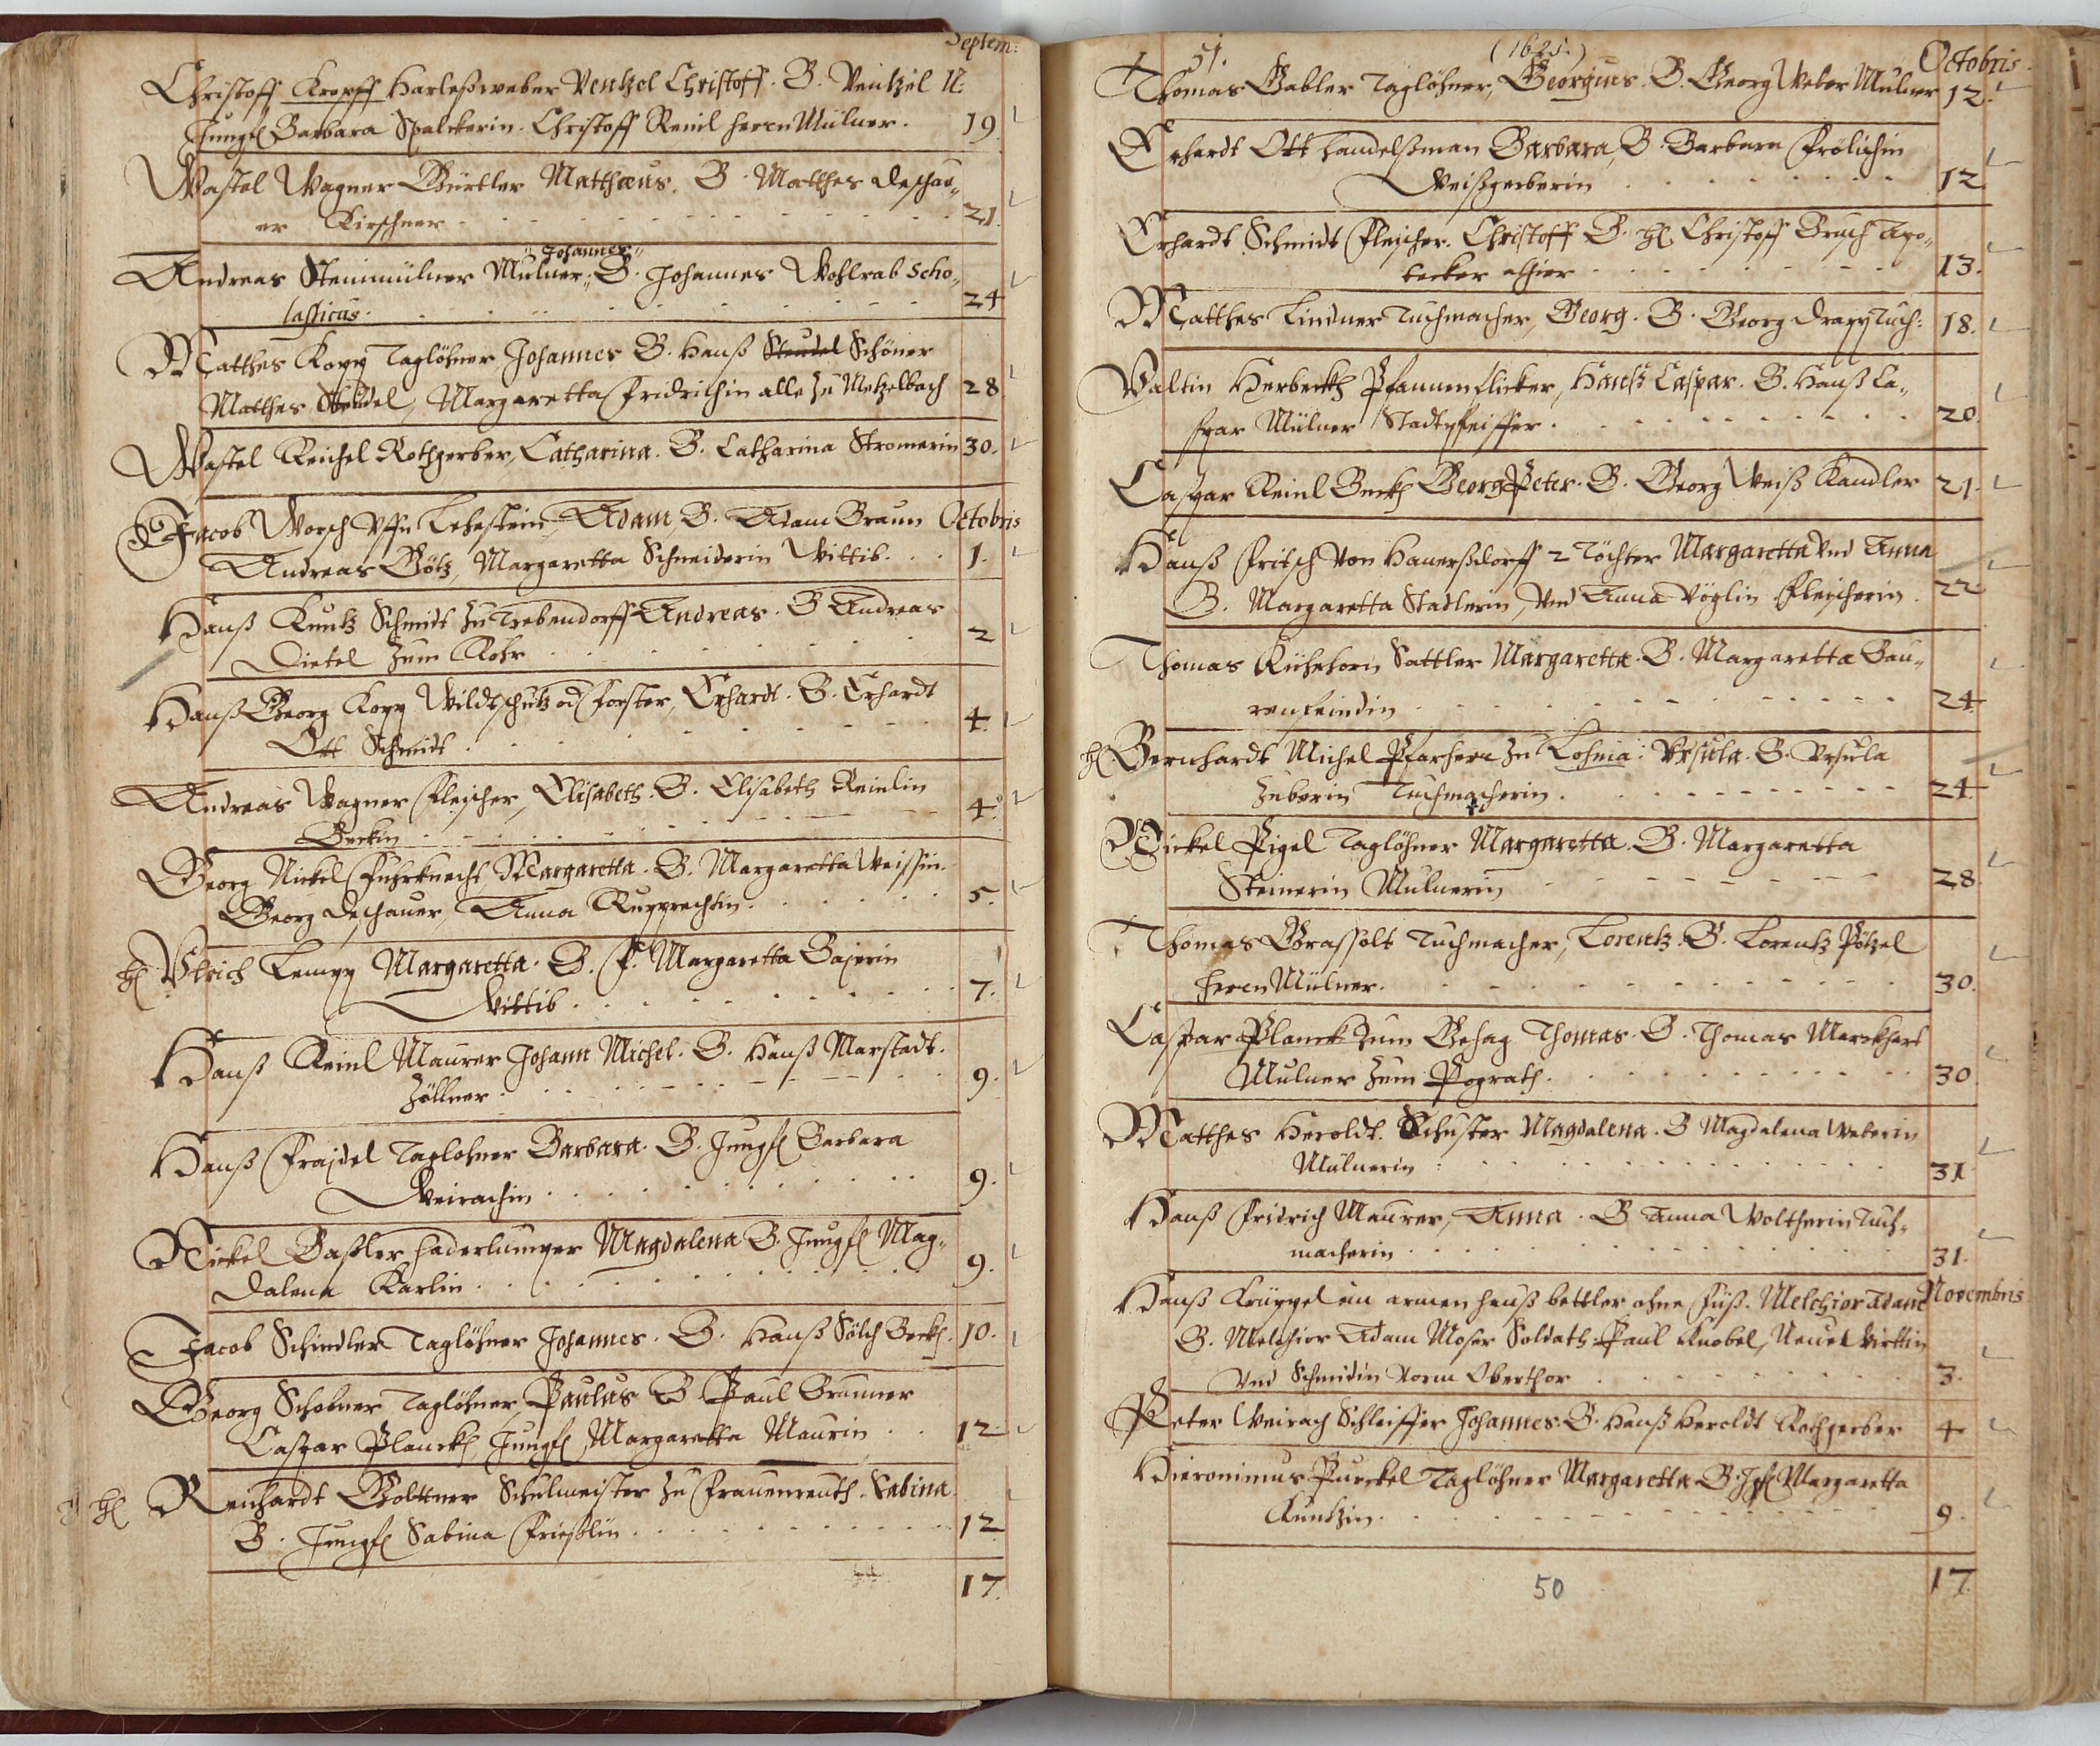 Septem:
Christoff Kropff Harleßweber Ventzel Christoff. G. Ventzel N.
Jungf Barbara Spalckerin. Christoff Reinl herrn Mülner. 19.
Wastel Wagner Gürtler Matthæus. G. Matthes Deschau„
er Kirschner 21.
„Johannes„
Andreas Steinmülner Mülner„ G. Johannes Wohlrab Scho„
lasticus. 24
Matthes Kopp Taglöhner Johannes G. Hanß Steudel Schöner
Matthes Steudel, Margaretta Fridrichin alle zu Netzelbach 28
Wastel Reichel Rothgerber, Catharina. G. Catharina Stromerin 30.
Jacob Worsch vffn Lehestein, Adam G. Adam Braun Octobris
Andreas Götz, Margaretta Schneiderin Wittib. 1.
Hanß Kuntz Schmidt zu Trebendorff Andreas. G Andreas
Dietel zum Rohr 2
Hanß Georg Kopp Wildtschütz od Forster, Erhardt. G. Erhardt
Ott Schmidt. 4.
Andreas Wagner Fleischer, Elisabeth. G. Elisabeth Reinlin
Beckin 4.
Georg Nickel Fuhrknecht Margaretta. G. Margaretta Weissin.
Georg Deschauer, Anna Rupprechtin. 5.
H Vlrich Lempp Margaretta. G. F. Margaretta Bajerin
Wittib. 7.
Hanß Reinl Maurer Johann Michel. G. Hanß Marstadt.
Zöllner. 9.
Hanß Frajdel Taglohner Barbara. G. Jungf Barbara
Weirachin. 9.
Nickel Gaßler Haderlumper Magdalena G. Jungf Mag„
dalena Karlin. 9.
Jacob Schindler Taglöhner Johannes. G. Hanß Sölch Beck. 10.
Georg Schobner Taglöhner, Paulus G Paul Brunner
Caspar Planck, Jungf Margaretta Maurin 12
H Renhardt Golttner Schulmeister zu Frauenreuth. Sabina.
G. Jungf Sabina Frießlin. 12
17.
51. (1621.) Octobris
Thomas Gabler Taglöhner, Georgius. G. Georg Weber Mulner 12.
Erhardt Ott handelßman Barbara, G. Barbara Frölichin
Weißgerberin 12.
Erhardt Schmidt Fleischer. Christoff G. H Christoff Bruch Apo„
tecker alhier 13.
Matthes Lindner Tuchmacher, Georg. G. Georg Drapp Tuch: 18.
Valtin Herbeck Pfannenflicker, Hanß Caspar. G. Hanß Ca„
spar Mülner Stadtpfeiffer. 20.
Caspar Reinl Beck Georg Peter. G. Georg Weiß Kandler 21.
Hanß Fritsch von Hauerßdorff 2 Töchter Margaretta vnd Anna
G. Margaretta Stadlerin, vnd Anna Vöglin Fleischerin. 22
Thomas Kühehorn Sattler Margaretta. G. Margaretta Bau„
renfeindin 24.
H Bernhardt Michel Pfarherr zu Lohma: Vrsula. G. Vrsula
Zuberin Tuchmacherin. 24.
Nickel Pigel Taglöhner Margaretta. G. Margaretta
Steinerin Mulnerin 28.
Thomas Grassolt Tuchmacher, Lorentz. G. Lorentz Pötzel
herrn Mülner. 30.
Caspar Planck zum Gehag Thomas. G. Thomas Marckhart
Mulner zum Pograth. 30.
Matthes Heroldt. Schuster Magdalena. G Magdalena Weberin
Mulnerin 31
Hanß Fridrich Maurer, Anna. G. Anna Woltherin Tuch„
macherin 31.
Hanß Krüppel im armen hauß bettler ohne Füß. Melchior Adam Novembris
G. Melchior Adam Moser Soldath. Paul Knobel, Neuel Wirttin
vnd Schmidin vorm Oberthor 3.
Peter Weirach Schleiffer Johannes. G. Hanß Heroldt Rothgerber 4
Hieronimus Purckel Taglöhner Margaretta G. Jgf Margaretta
Kuntzin. 9.
17.
50